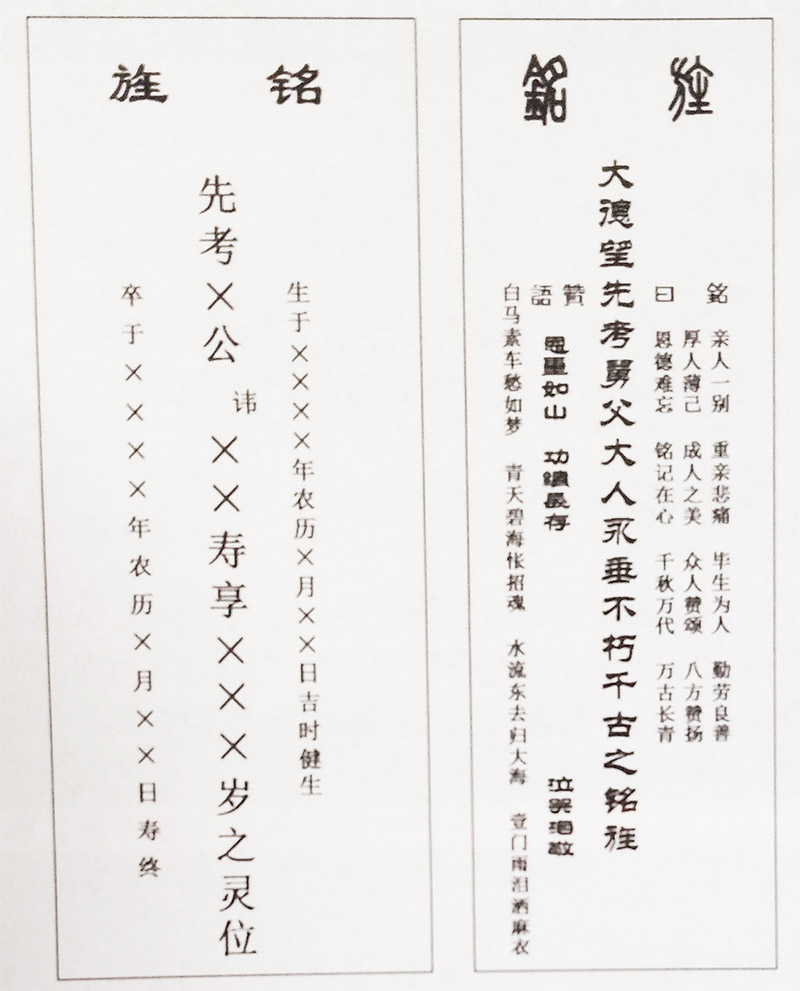 銘旌
銘曰
亲人一别 重亲悲痛 毕生为人 勤劳良善
厚人薄己 成人之美 众人赞颂 八方赞扬
恩德难忘 铭记在心 千秋万代 万古长青
大德望先考舅父大人永垂不朽千古之铭旌
贊語
恩重如山 功績長存 泣哭敬
白马素车愁如梦 青天碧海怅招魂 水流东去归大海 壹门雨泪洒麻衣
铭旌
生于××××年农历×月××日吉时健生
先考×公讳××寿享×××岁之灵位
卒于××××年农历×月××日寿终